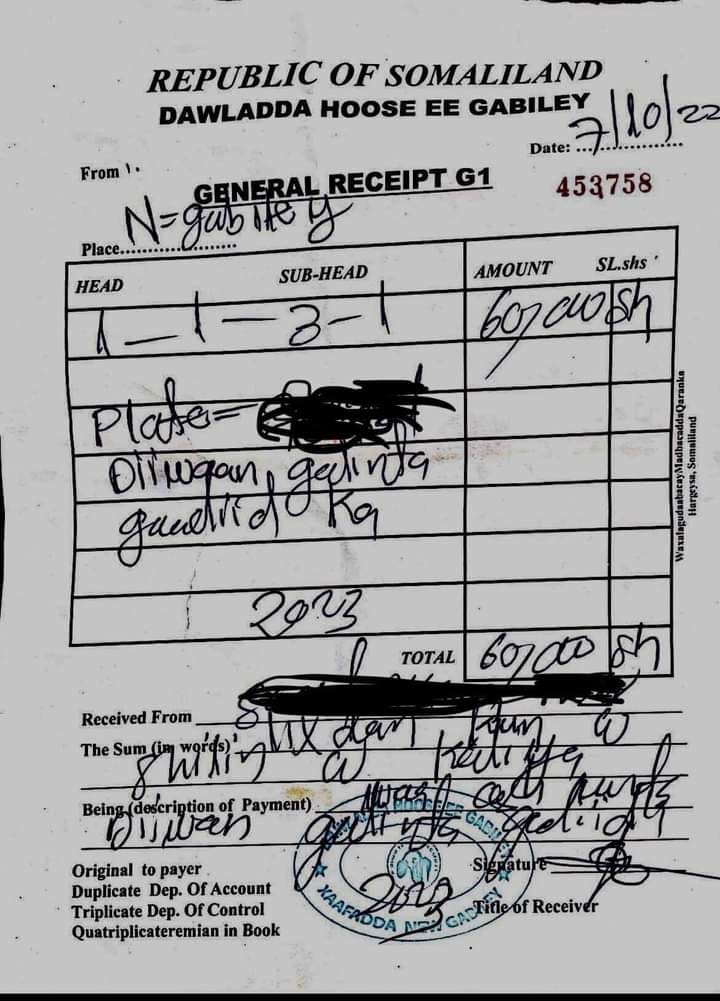 REPUBLIC OF SOMALILAND
DAWLADDA HOOSE EE GABILEY
Date: 7/10/22
From
GENERAL RECEIPT G1
453758
Place N=gabiley
HEAD SUB-HEAD AMOUNT SL.shs
1-1-3-1 60,000 sh
Plate=
Diiwaan gelinta
gaadiidka
2023
TOTAL 60,000 sh
Received From
The Sum (in words) Lixdan kun
shilin
Being (description of Payment)
Diiwan gelinta
Original to payer
Duplicate Dep. Of Account
Triplicate Dep. Of Control
Quatriplicateremian in Book
Signature
Title of Receiver
2023
HOOSE EE GABILEY
XAAFADDA NEW GABILEY
WaxalagudaabacayMadbacaddaQaranka
Hargeysa, Somaliland